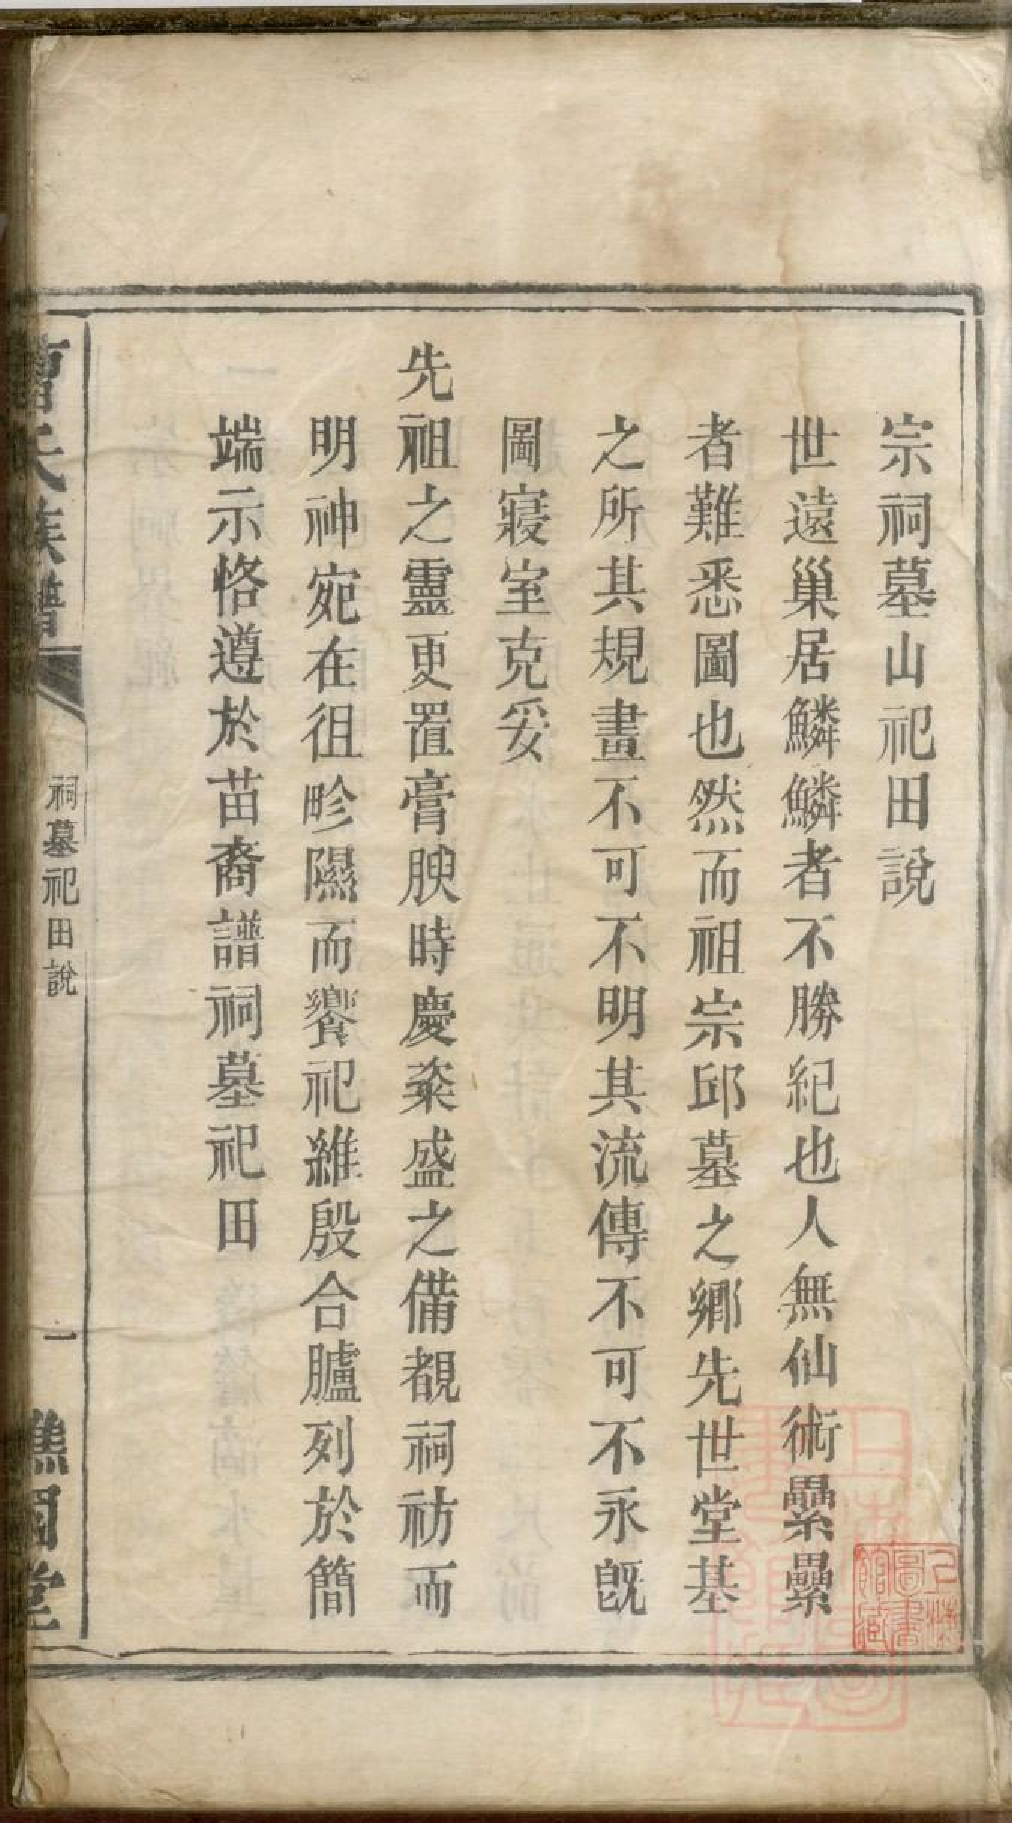 宗祠墓山祀田說
世遠巢居鱗鱗者不勝紀也人無仙術纍纍
者難悉圖也然而祖宗邱墓之鄉先世堂基
之所其規畫不可不明其流傳不可不永旣
圖寢室克妥
先祖之靈更置膏腴時慶粢盛之備覩祠祊而
明神宛在徂畛隰而饗祀維殷合臚列於簡
端示恪遵於苗裔譜祠墓祀田
曹氏族譜
祠墓祀田說
一
譙國堂
上海圖書館藏